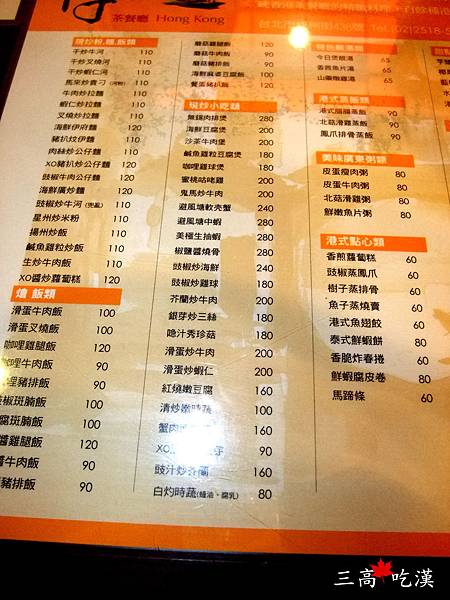 茶餐廳 Hong Kong
台北市錦州街436號 電(02)2518-5
現炒粉.麵.飯類
干炒牛河 110
干炒叉燒河 110
干炒蝦仁河 110
馬來炒貴刁(河粉) 110
牛肉炒拉麵 110
蝦仁炒拉麵 110
叉燒炒拉麵 110
海鮮伊府麵 120
豬扒炆伊麵 110
肉絲炒公仔麵 110
XO豬扒炒公仔麵 120
豉椒牛肉公仔麵 110
海鮮廣炒麵 120
豉椒炒牛河 110
星州炒米粉 110
揚州炒飯 110
鹹魚雞粒炒飯 110
生炒牛肉飯 110
XO醬炒蘿蔔糕 120
燴 飯類
滑蛋牛肉飯 100
滑蛋叉燒飯 100
咖哩雞腿飯 120
咖哩牛肉飯 90
哩豬排飯 90
豉椒斑腩飯 100
腐斑腩飯 100
醬雞腿飯 120
醬牛肉飯 90
豬排飯 90
蘑菇雞腿飯 120
蘑菇牛肉飯 90
蘑菇豬排飯 90
海鮮麻婆豆腐飯 100
餐蛋豬扒飯 100
現炒小吃類
無錫排肉煲 280
海鮮豆腐煲 280
沙茶牛肉煲 200
鹹魚雞粒豆腐煲 200
咖哩雞球煲 200
蜜桃咕咾雞 200
鬼馬炒牛肉 200
避風塘軟壳蟹 240
避風塘中蝦 280
美極生抽蝦 280
椒鹽醬燒骨 200
豉椒炒海鮮 240
豉椒炒雞球 200
芥蘭炒牛肉 200
銀芽炒三絲 200
喼汁秀珍菇 200
滑蛋炒牛肉 200
滑蛋炒蝦仁 200
紅燒嫩豆腐 160
清炒嫩時蔬 100
蟹肉 180
XO 90
豉汁炒芥蘭 160
白灼時蔬(蠔油、腐乳) 80
特色靚湯
今日煲靚湯 65
香茜魚片湯 65
山靈燉雞湯
港式蒸飯類
港式臘腸蒸飯 65
北菇滑雞蒸飯 90
鳳爪排骨蒸飯 90
美味廣東粥類
皮蛋瘦肉粥 80
皮蛋牛肉粥 80
北菇滑雞粥 80
鮮嫩魚片粥 80
港式點心類
香煎蘿蔔糕 60
豉椒蒸鳳爪 60
樹子蒸排骨 60
魚子蒸燒賣 60
港式魚翅餃 60
泰式鮮蝦餅 80
香脆炸春捲 60
鮮蝦腐皮卷 80
馬蹄條 60
三高 吃漢